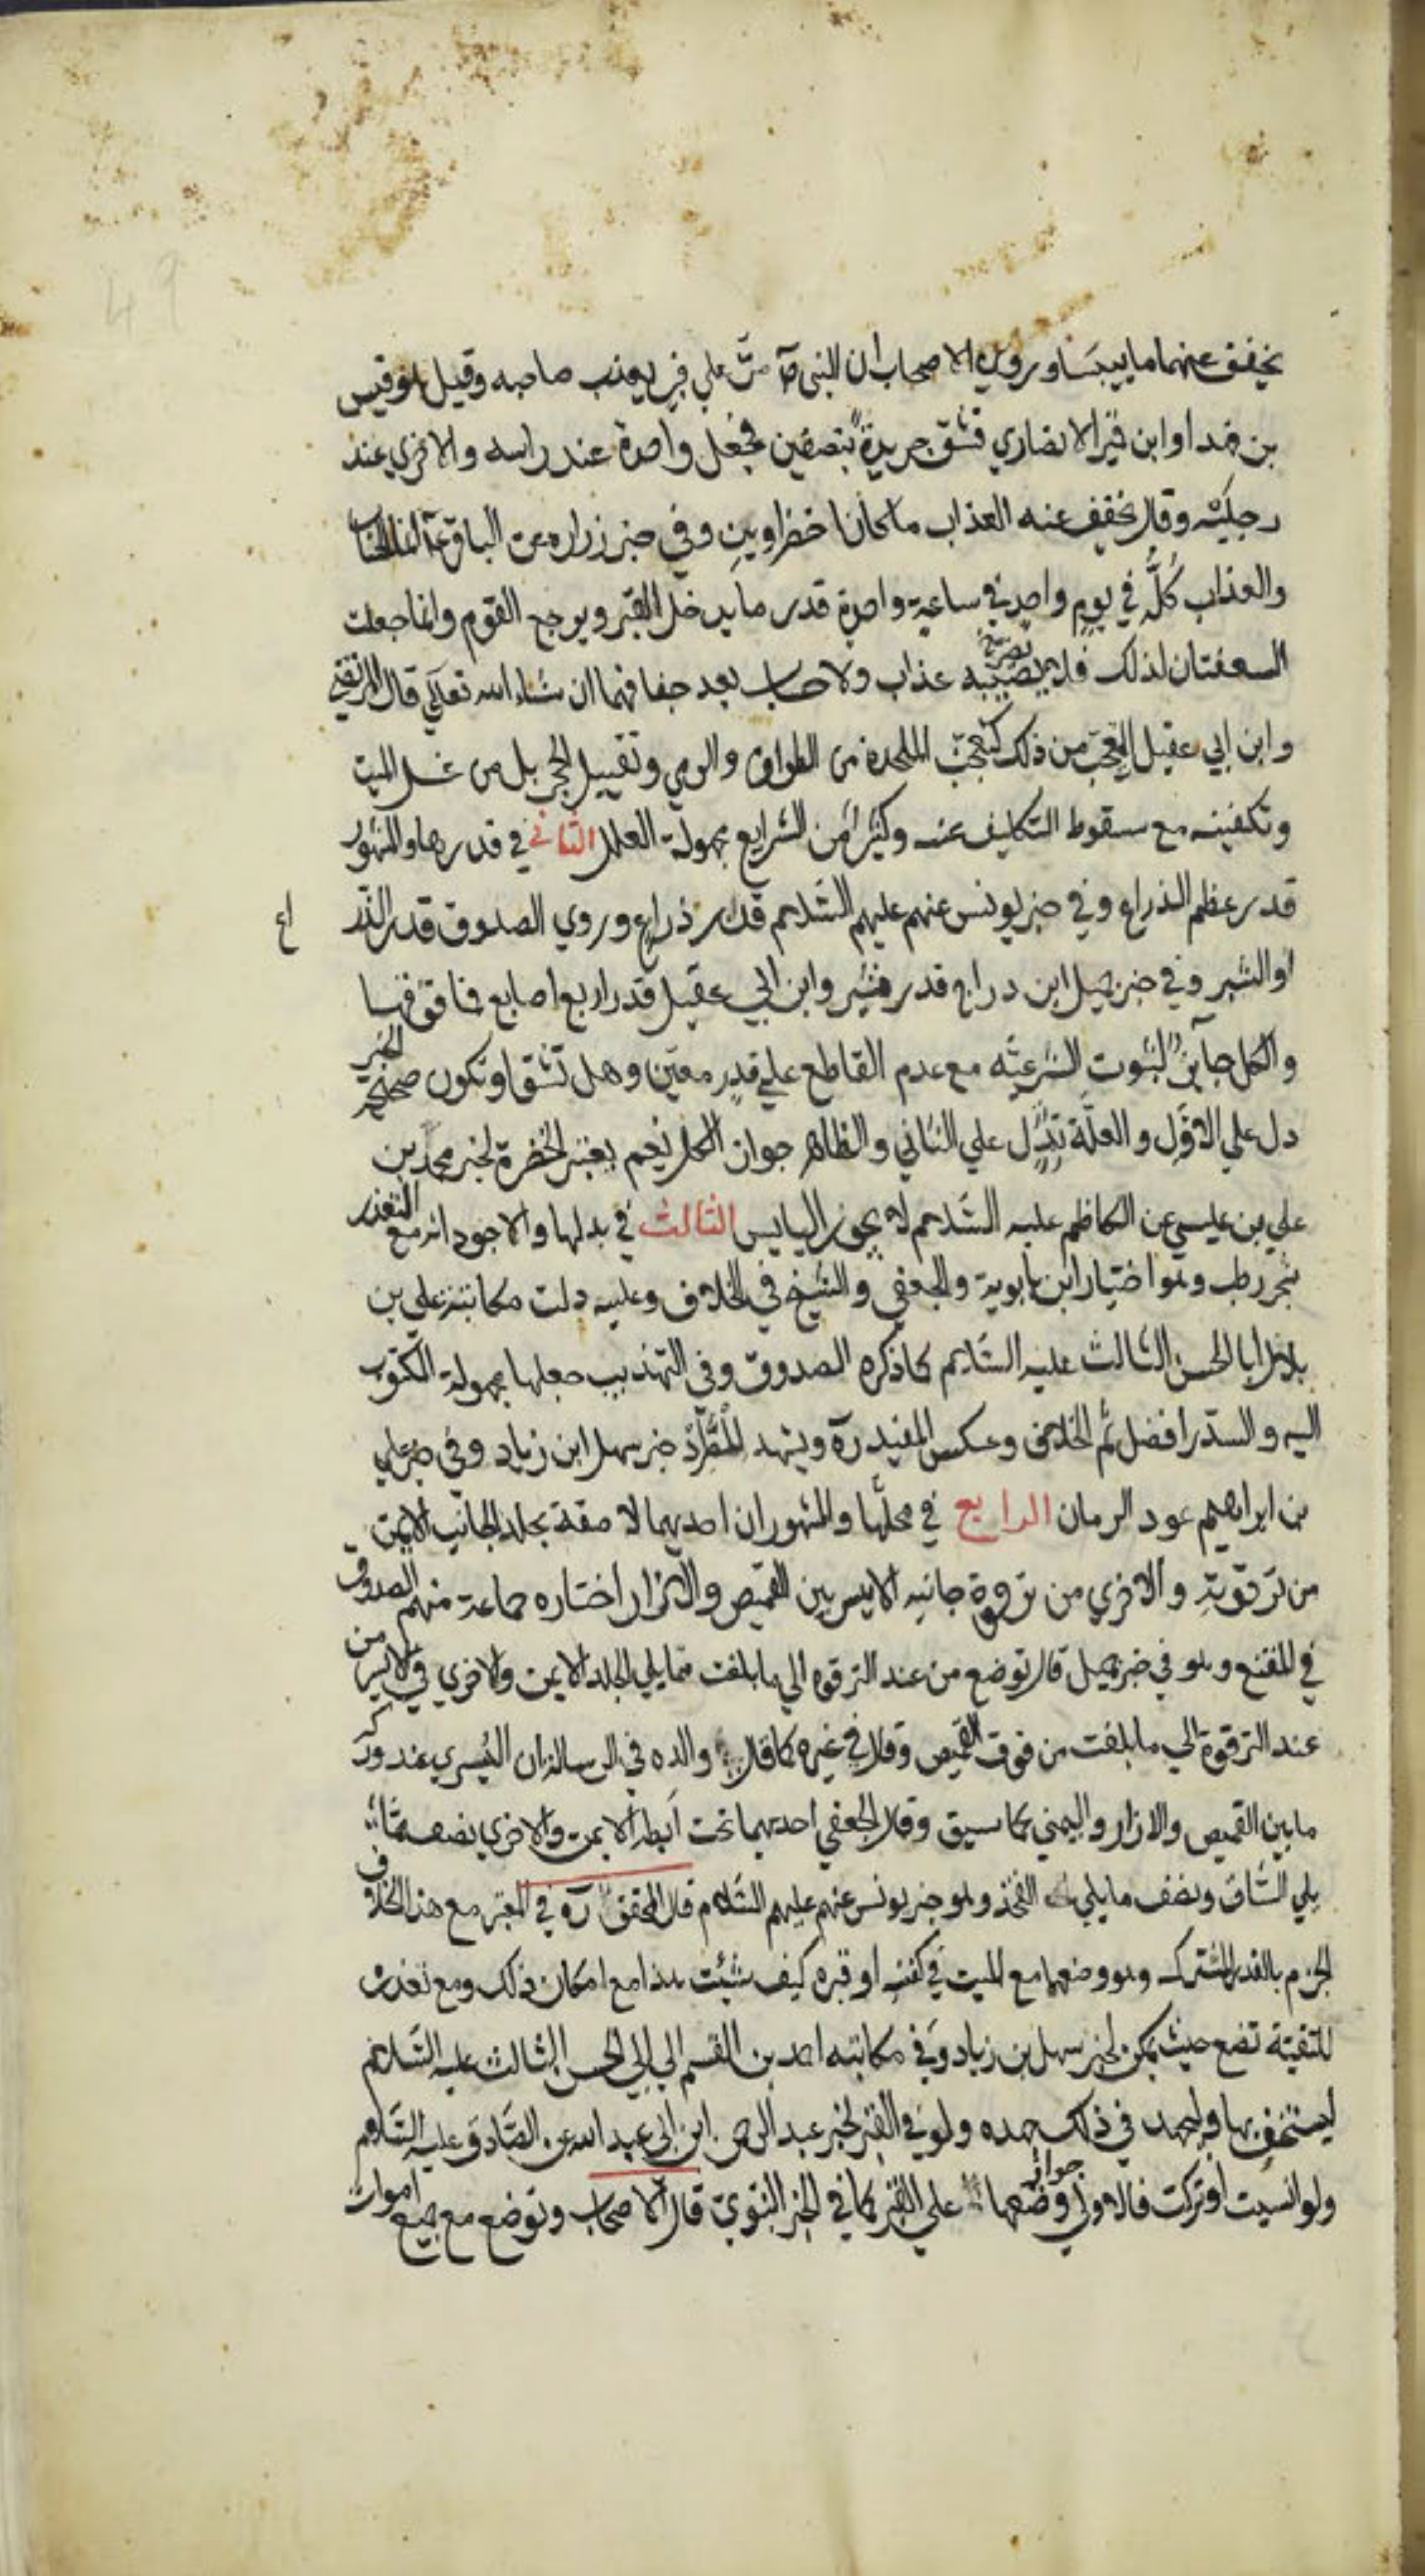 يخفف عنهما ما ييبسا وروى الاصحاب ان النبي ص مر علي قبر يعذب صاحبه وقيل هو قيس
بن فهد او ابن قير الانصاري فشق جريدة بنصفين فجعل واحدة عند راسه والاخري عند
رجليه وقال يخفف عنه العذاب ما كانا خضراوين وفي خبر زراره عن الباقر ع انما الحساب
والعذاب كله في يوم واحد في ساعة واحدة قدر ما يدخل القبر ويرجع القوم وانما جعلت
السعفتان لذلك فلا يصيبه عذاب ولا حساب بعد جفافهما ان شاء الله تعالي قال المرتضي
وابن ابي عقيل التعجب من ذلك كتعجب الملحدة من الطواف والرمي وتقبيل الحجر بل من غسل الميت
وتكفينه مع سقوط التكليف عنه وكثير من الشرايع مجهولة العلل الثاني في قدرها والمشهور
قدر عظم الذراع وفي خبر يونس عنهم عليهم السلام قدر ذراع وروي الصدوق قدر الذر
اع
او الشبر وفي خبر جميل ابن دراج قدر شبر وابن ابي عقيل قدر اربع اصابع فما فوقها
والكل جايز لثبوت الشرعية مع عدم القاطع علي قدر معين وهل تشق او تكون صحيحة الخبر
دل علي الاول والعلة تدل علي الثاني والظاهر جواز الكل نعم يعتبر الخضرة لخبر محمد بن
علي بن عيسي عن الكاظم عليه السلام لا يجوز اليابس الثالث في بدلها والاجود انه مع التعذر
شجر رطب وهو اختيار ابن بابوية والجعفي والشيخ في الخلاف وعليه دلت مكاتبة علي بن
بلال ابا الحسن الثالث عليه السلام كما ذكره الصدوق وفي التهذيب جعلها مجهولة المكتوب
اليه والسدر افضل ثم الخلاف وعكس المفيد ره ويشهد للمقرر خبر سهل ابن زياد وفي خبر علي
بن ابراهيم عود الرمان الرابع في محلها والمشهور ان احديهما لاصقة بجلد الجانب الايمن
من ترقوته والاخري من ترقوة جانبه الايسر بين القميص والازار اختاره جماعة منهم الصدوق
في المقنع وهو في خبر جميل قال توضع من عند الترقوه الي ما بلغت مما يلي الجلد الايمن والاخري في الايسر من
عند الترقوة الي ما بلغت من فوق القميص وقال في غيره كما قال والده في الرسالة ان اليسري عند وركه
ما بين القميص والازار واليمني كما سبق وقال الجعفي احديهما تحت ابطه الايمن والاخري نصف مما
يلي الساق ونصف ما يلي الفخذ وهو خبر يونس عنهم عليهم السلام قال المحقق ره في المعتبر مع هذا الخلاف
الجزم بالقدر المشترك وهو وضعهما مع الميت في كفنه او قبره كيف شيئت هذا مع امكان ذلك ومع تعذره
للتقية تضع حيث يمكن لخبر سهل بن زياد وفي مكاتبه احمد بن القسم الي ابي الحسن الثالث عليه السلام
ليستخف بها وليجهد في ذلك جهده ولو في القبر لخبر عبد الرحمن ابن ابي عبد الله عن الصادق عليه السلام
ولو انسيت او تركت فالاولي جواز وضعهما علي القبر كما في الخبر النبوي قال الاصحاب وتوضع مع جميع اموات